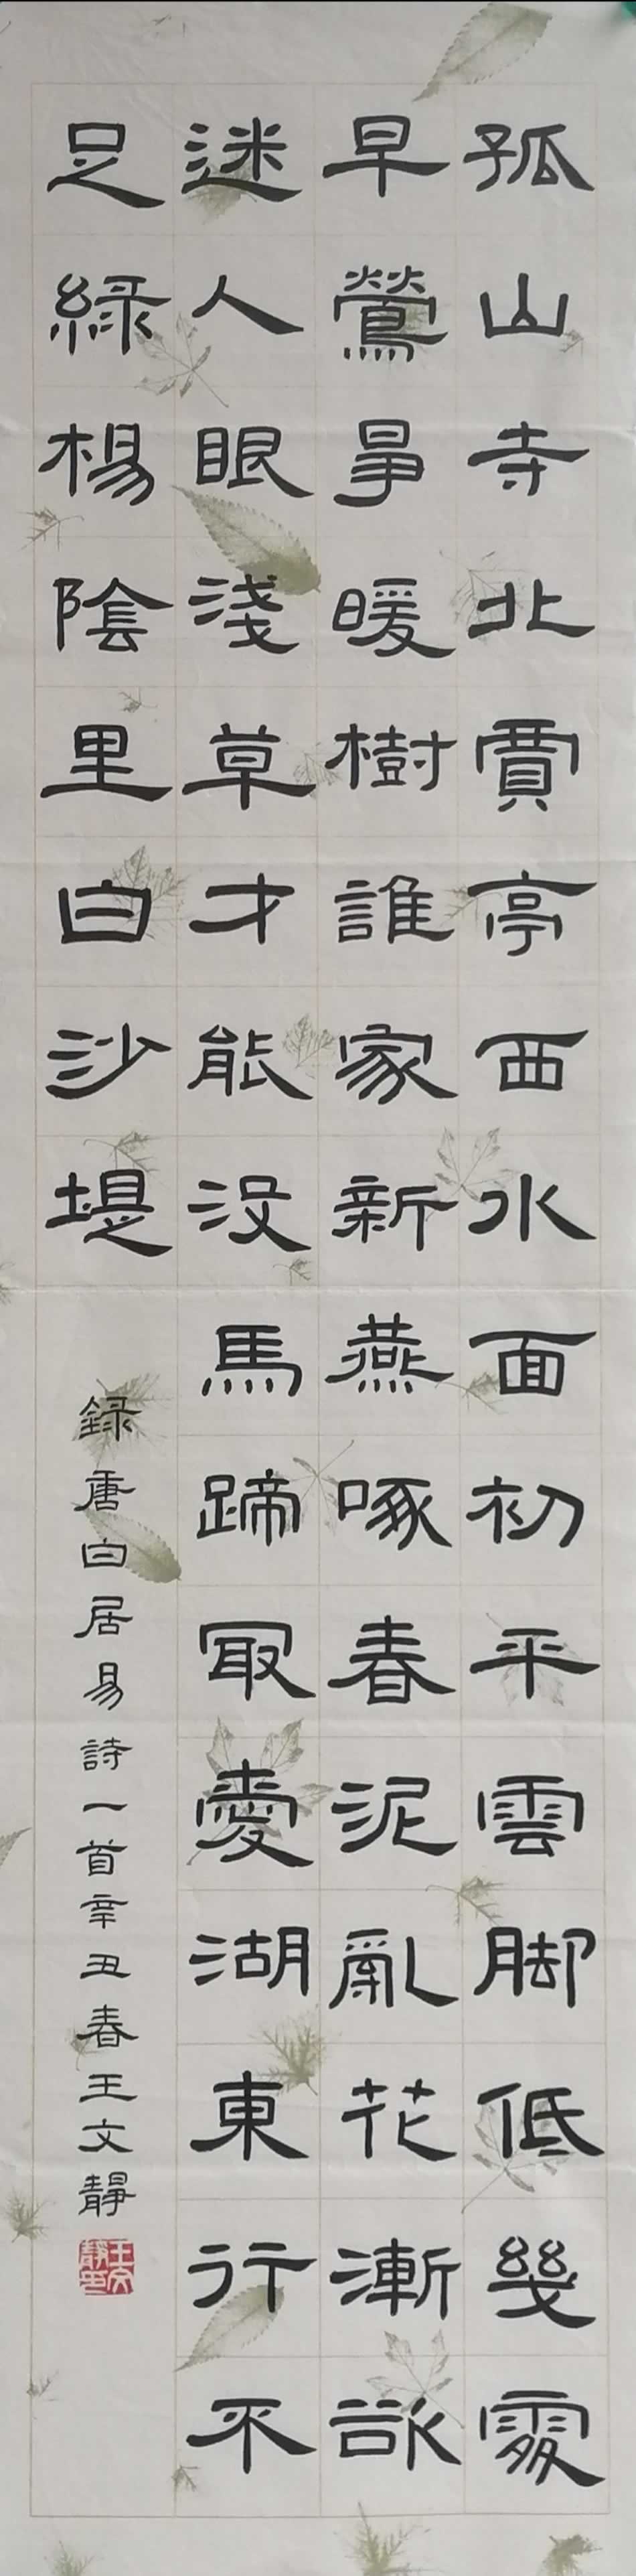 孤山寺北賈亭西水面初平雲脚低幾處
早鶯爭暖樹誰家新燕啄春泥亂花漸欲
迷人眼淺草才能沒馬蹄冣愛湖東行不
足綠楊陰里白沙堤
錄唐白居易詩一首辛丑春王文靜
王文靜印